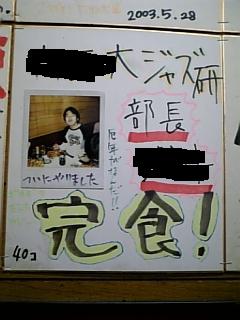 2003.5.28
大ジャズ研
部長
厄年がなんだ!!
ついにやりました
完食!
40コ